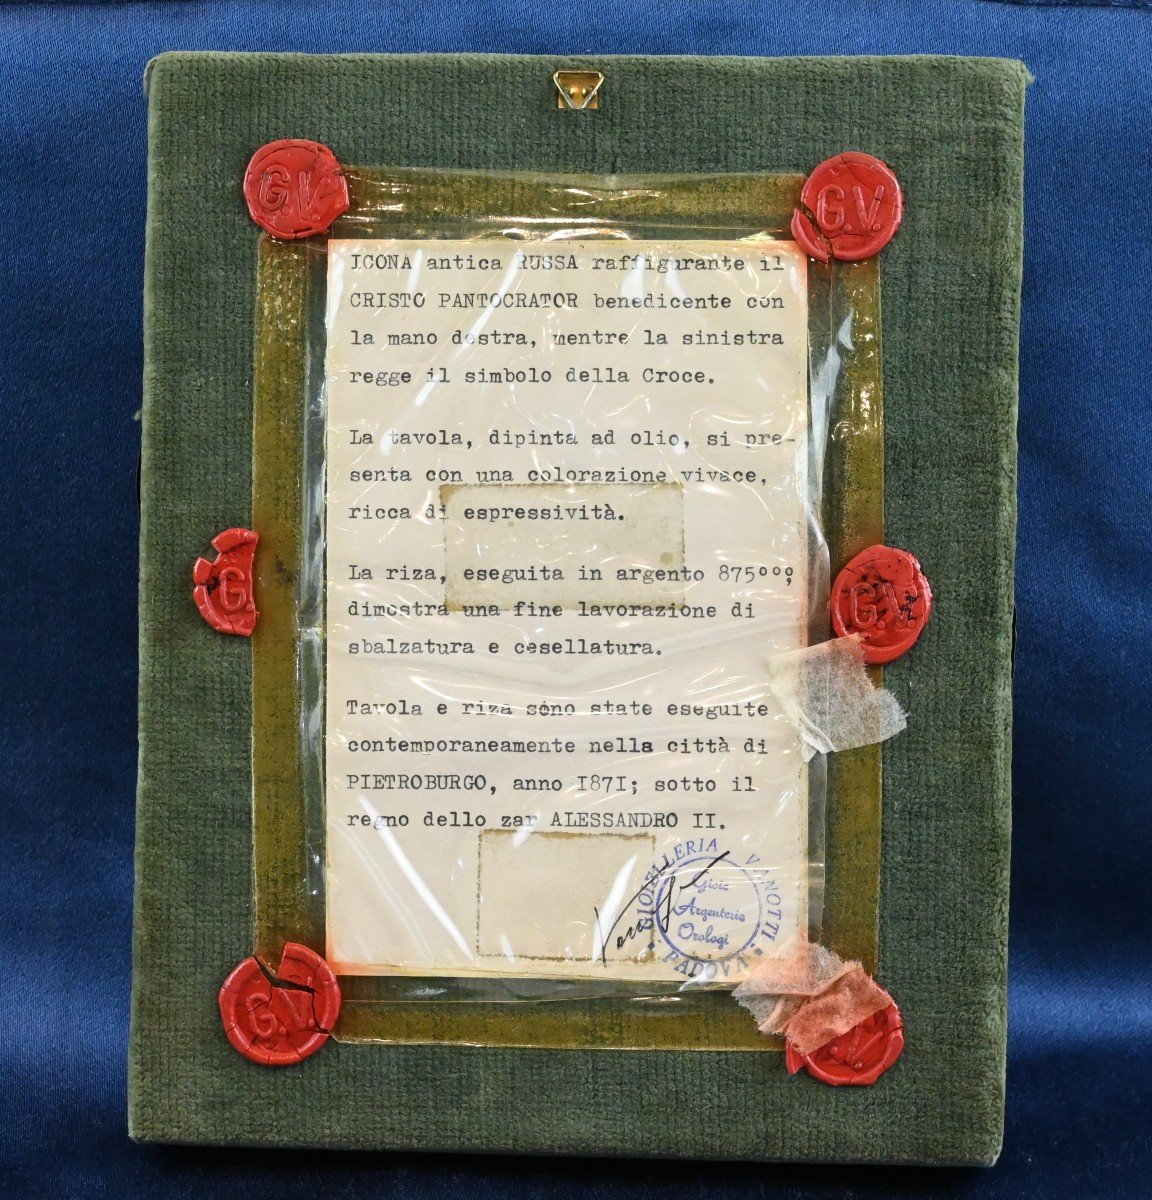 G.V.
G.V.
ICONA antica RUSSA raffigurante il
CRISTO PANTOCRATOR benedicente con
la mano destra, mentre la sinistra
regge il simbolo della Croce.
La tavola, dipinta ad olio, si pre-
senta con una colorazione vivace,
ricca di espressività.
La riza, eseguita in argento 875°°°;
dimostra una fine lavorazione di
sbalzatura e cesellatura.
G
G.V.
Tavola e riza sono state eseguite
contemporaneamente nella città di
PIETROBURGO, anno I87I; sotto il
regno dello zar ALESSANDRO II.
GIOIELLERIA VANOTTI
Gioie
Argenteria
Orologi
PADOVA
G.V.
V.